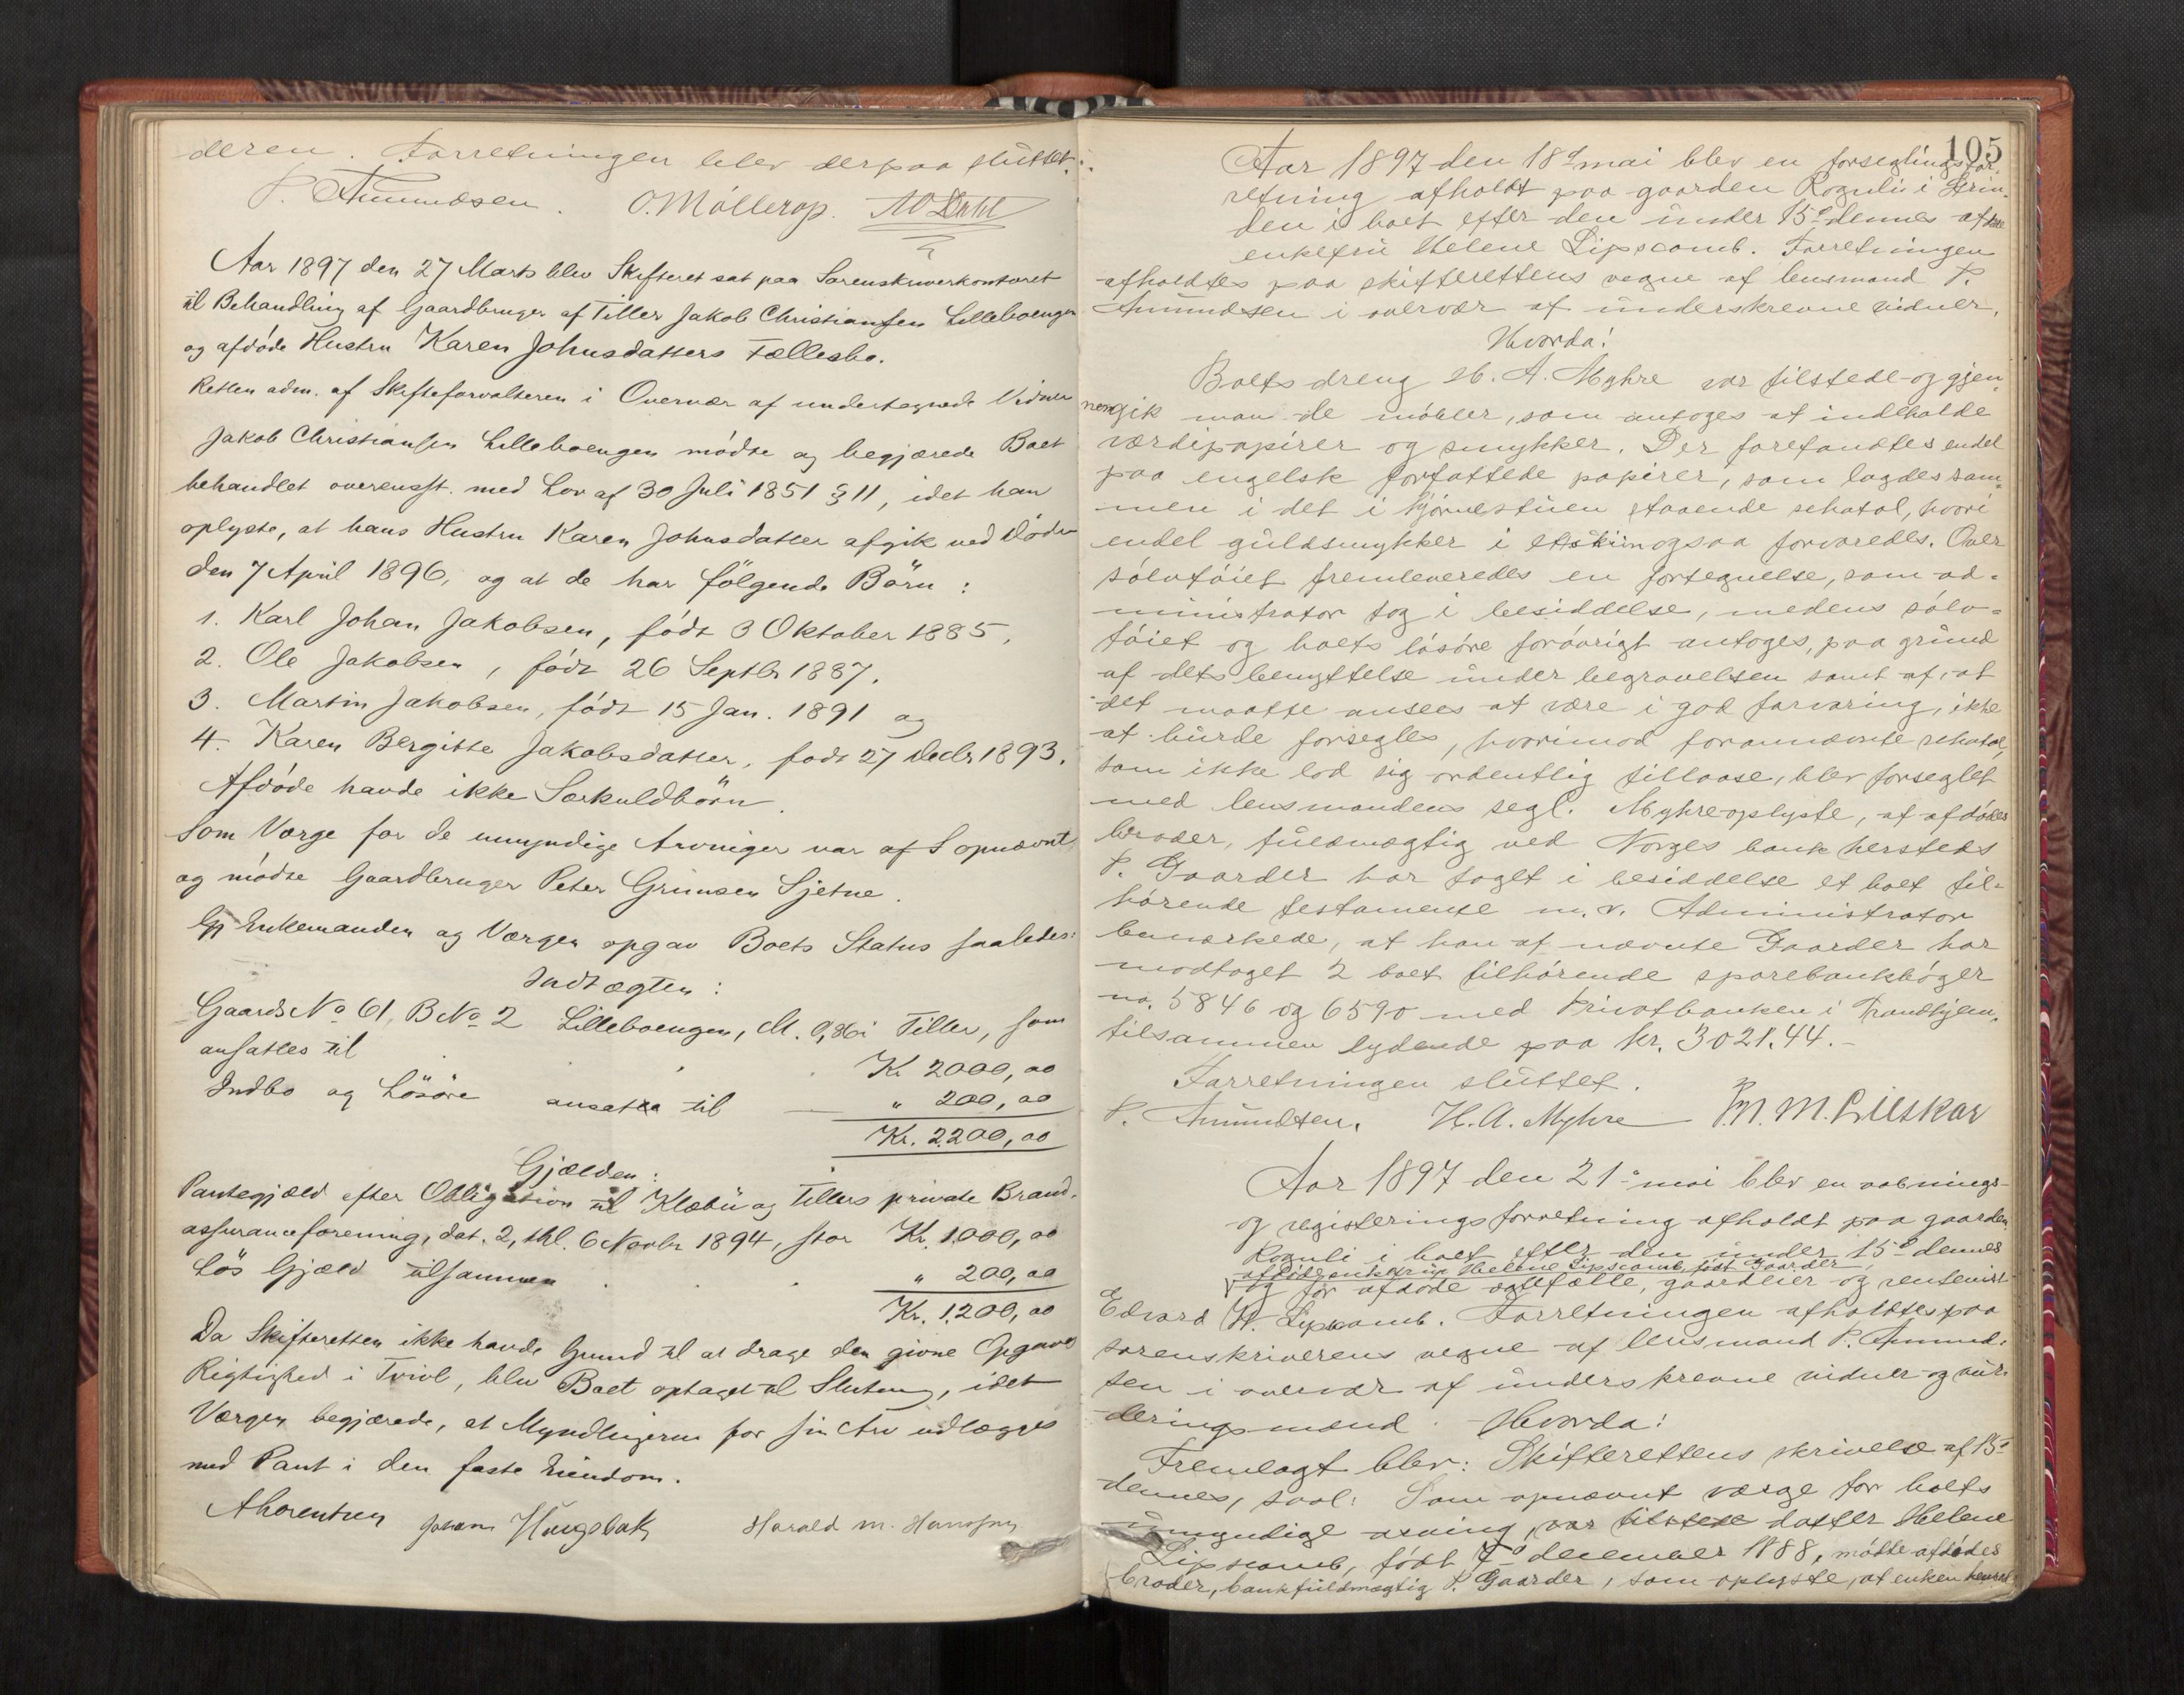 deren. Forretningen blev derpaa sluttet.
P. Amundsen. O. Möllerop. M Dahl
Aar 1897 den 27 Marts blev Skifteret sat paa Sorenskriverkontoret
til Behandling af Gaardbruger af Tiller Jakob Christiansen Lilleboengen
og afdøde Hustru Karen Johnsdatters Fællesbo.
Retten adm. af Skifteforvalteren i Overvær af undertegnede Vidner
Jakob Christiansen Lilleboengen mødte og begjærede Boet
behandlet overensst. med Lov af 30 Juli 1851 § 11, idet han
oplyste, at hans Hustru Karen Johnsdatter afgik ved Døden
den 7 April 1896, og at de har følgende Børn:
1. Karl Johan Jakobsen, født 3 Oktober 1885,
2. Ole Jakobsen, født 26 Septbr 1887,
3. Martin Jakobsen, født 15 Jan. 1891 og
4. Karen Bergitte Jakobsdatter, født 27 Decbr 1893.
Afdøde havde ikke Særkuldbørn.
Som Værge for de umyndige Arvinger var af S opnævnt
og mødte Gaardbruger Peter Grimsen Sjetne.
Enkemanden og Værgen opgav Boets Status saaledes:
Indtægten:
Gaards No 61, B No 2 Lilleboengen, M. 0,86 i Tiller, som
ansattes til Kr 2000,00
Indbo og Løsøre ansattes til " 200,00
Kr. 2200,00
Gjælden:
Pantegjæld efter Obligation til Klæbü og Tillers private Brand-
assuranceforening, dat. 2, thl. 6 Novbr 1894, stor Kr. 1000,00
Løs Gjæld tilsammen " 200,00
Kr. 1200,00
Da Skifteretten ikke havde Grund til at drage den givne Opgaves
Rigtighed i Tvivl, blev Boet optaget til Slutning, idet
Værgen begjærede, at Myndlingerne for sin Arv udlægges
med Pant i den faste Eiendom.
A Lorentzen Johan Haugsbak Harald M. Hansen
105
Aar 1897 den 18de mai blev en forseglingsfor-
retning afholdt paa gaarden Rognli i Strin-
den i boet efter den under 15de dennes afdøde
enkefru Helene Lipscomb. Forretningen
afholdtes paa skifterettens vegne af lensmand P.
Amundsen i overvær af underskrevne vidner.
Hvorda!
Boets dreng H. A. Myhre var tilstede og gjen-
nemgik man de møbler, som antoges at indeholde
værdipapirer og smykker. Der forefandtes endel
paa engelsk forfattede papirer, som lagdes sam-
men i det i hjørnestuen staaende schatol, hvori
endel guldsmykker i et skrin ogsaa forvaredes. Over
sølvtøiet fremleveredes en fortegnelse, som ad-
ministrator tog i besiddelse, medens sølv-
tøiet og boets løsøre forøvrigt antoges, paa grund
af dets benyttelse under begravelsen samt af, at
det maatte ansees at være i god forvaring, ikke
at burde forsegles, hvorimod forannævnte schatol,
som ikke lod sig ordentlig tillaase, blev forseglet
med lensmandens segl. Myhre oplyste, at afdødes
broder, fuldmægtig ved Norges bank hersteds
P. Gaarder har taget i besiddelse et boet til-
hørende testamente m.v. Administrator
bemærkede, at han af nævnte Gaarder har
modtaget 2 boet tilhørende sparebankbøger
no. 5846 og 6590 med Privatbanken i Trondhjem,
tilsammen lydende paa kr. 3021.44.-
Forretningen sluttet.
P. Amundsen. H. A. Myhre M. Lilleskar
Aar 1897 den 21de mai blev en aabnings-
og registeringsforretning afholdt paa gaarden
Rognli i boet efter den under 15de dennes
afdøde enkefru Helene Lipscomb født Gaarder,
og før afdøde ægtefælle, gaardeier og rentenist
Edvard W. Lipscomb. Forretningen afholdtes paa
sorenskriverens vegne af lensmand P. Amund-
sen i overvær af underskrevne vidner og vur-
deringsmænd. Hvorda!
Fremlagt blev: Skifterettens skrivelse af 15de
dennes, saal: Som opnævnt værge for boets
umyndige arving, datter Helene
Lipscomb, født 7de december 1888, mødte afdødes
broder, bankfuldmægtig P. Gaarder, som oplyste, at enken